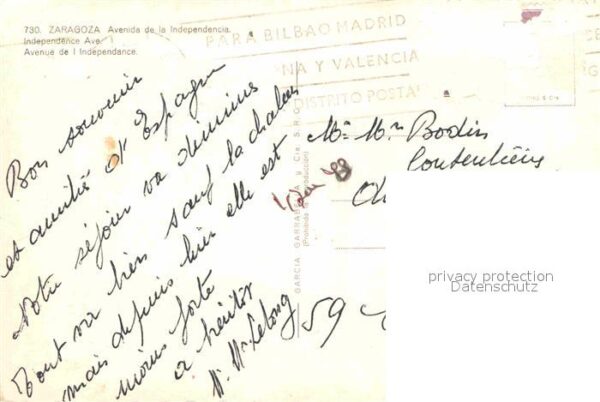 730. ZARAGOZA Avenida de la Independencia.
Independence Ave.
Avenue de l Independance.
PARA BILBAO MADRID
NA Y VALENCIA
DISTRITO POSTAL
Bon souvenir
et amitié d'Espagne
Notre séjour va
Tout va bien sauf la chaleur
mais depuis hier elle est
moins forte
a bientôt
M. Me Lelong
GARCIA GARRABELLA y Cia. S.R.C.
(Prohibida la reproducción)
Mr Mme Bodin
59
privacy protection
Datenschutz